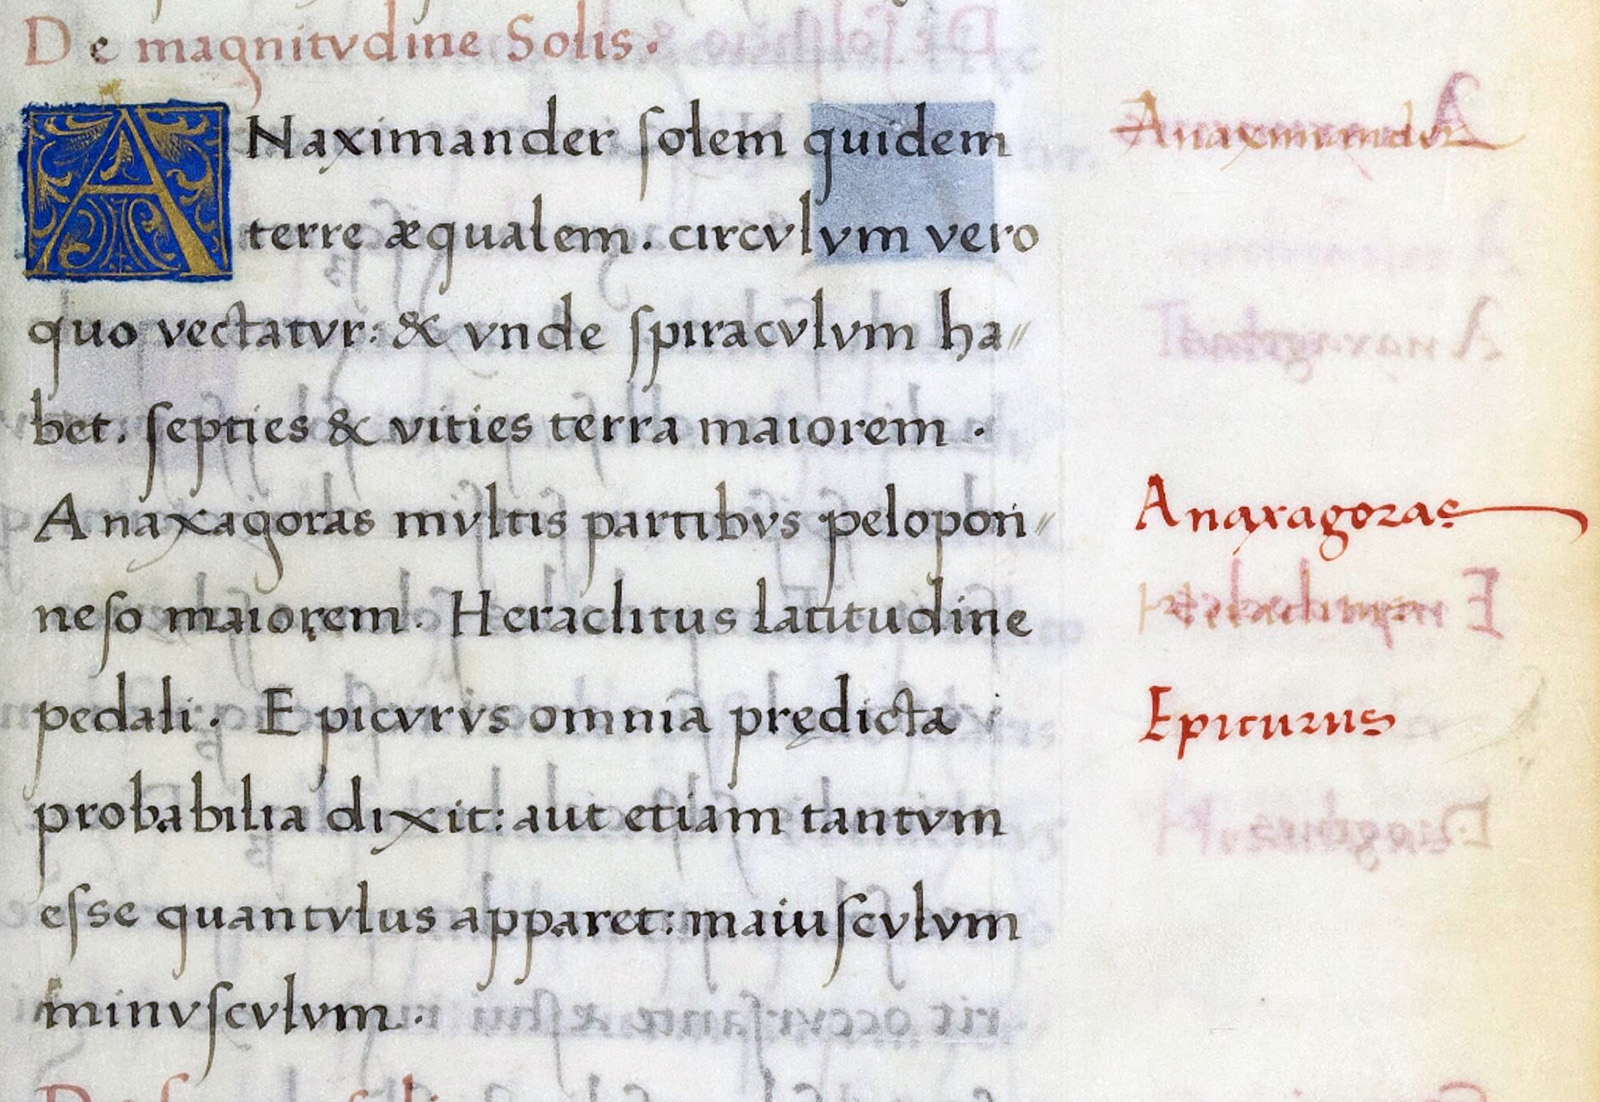 De magnitvdine Solis.
ANaximander ſolem quidem
terre æqualem. circvlvm vero
quo vectatvr: & vnde ſpiracvlvm ha//
bet. ſepties & vities terra maiorem.
Anaxagoras mvltis partibvs pelopon//
neſo maiorem. Heraclitus latitudine
pedali. Epicvrvs omnia prędicta
probabilia dixit: aut etiam tantvm
eſse quantvlus apparet: maiuſcvlvm
minvſcvlvm.
Anaximander
Anaxagoras
Epicurus